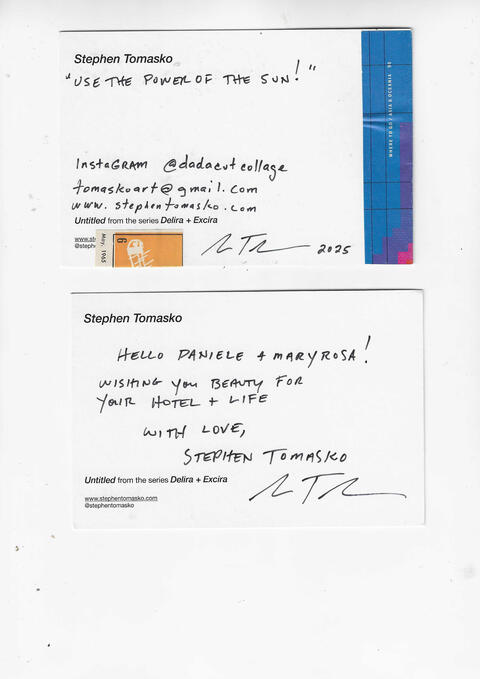 Stephen Tomasko
"USE THE POWER OF THE SUN!"
WHERE TO GO / ASIA & OCEANIA
InstaGRAM @dadacutcollage
tomaskoart@gmail.com
www.stephentomasko.com
Untitled from the series Delira + Excira
www.st
@steph
May, 1965
6
2025
Stephen Tomasko
HELLO DANIELE + MARYROSA!
WISHING YOU BEAUTY FOR
YOUR HOTEL + LIFE
WITH LOVE,
STEPHEN TOMASKO
Untitled from the series Delira + Excira
www.stephentomasko.com
@stephentomasko